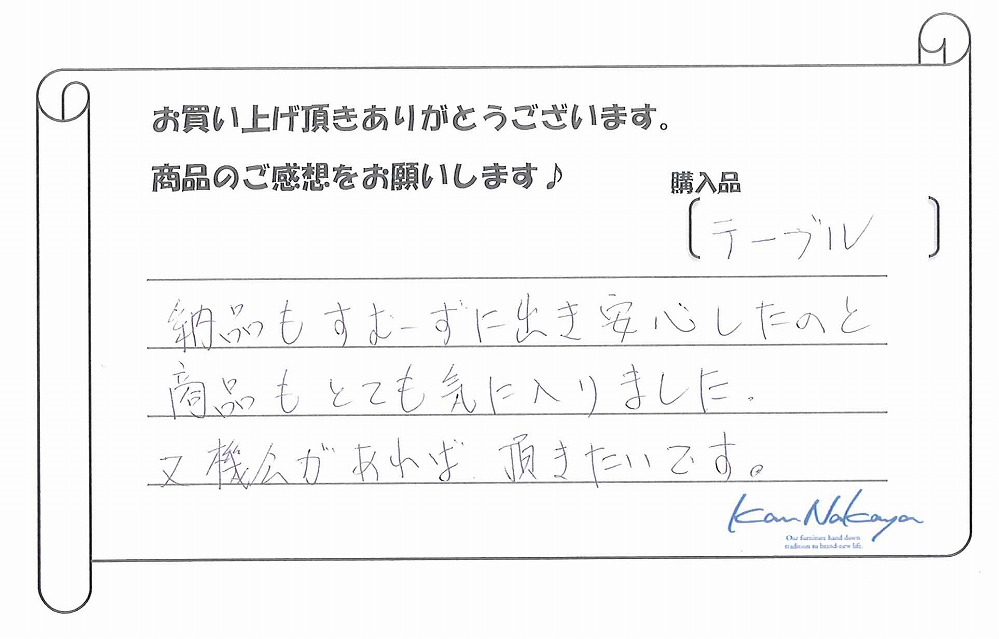 お買い上げ頂きありがとうございます。
商品のご感想をお願いします♪
購入品
〔テーブル〕
納品もすむーずに出き安心したのと
商品もとても気に入りました.
又機会があれば 頂きたいです。
KanNakaya
Our furniture hand down
tradition to brand-new life.